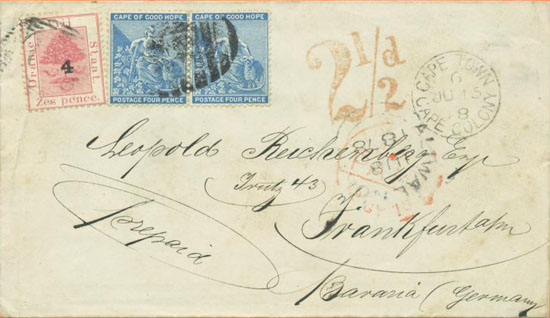 Oranje
Vrij
Staat
4
Zes pence.
CAPE OF GOOD HOPE
POSTAGE FOUR PENCE
CAPE OF GOOD HOPE
POSTAGE FOUR PENCE
2 1/2 d
CAPE TOWN
6
JU 15
8
CAPE COLONY
Leopold Reichenberg Esq
Trutz 43
Frankfurt a/m
Bavaria (Germany
prepaid